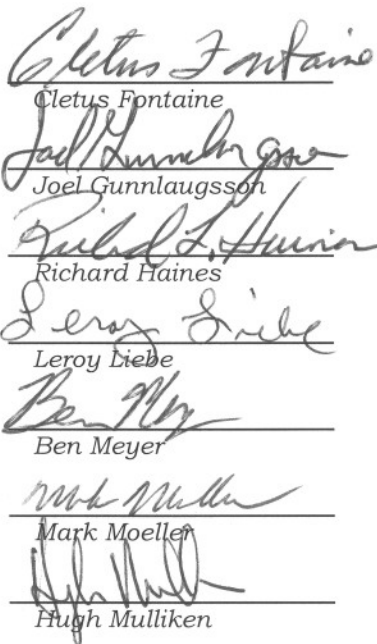 Cletus Fontaine
Cletus Fontaine
Joel Gunnlaugsson
Joel Gunnlaugsson
Richard L. Haines
Richard Haines
Leroy Liebe
Leroy Liebe
Ben Meyer
Ben Meyer
Mark Moeller
Mark Moeller
Hugh Mulliken
Hugh Mulliken